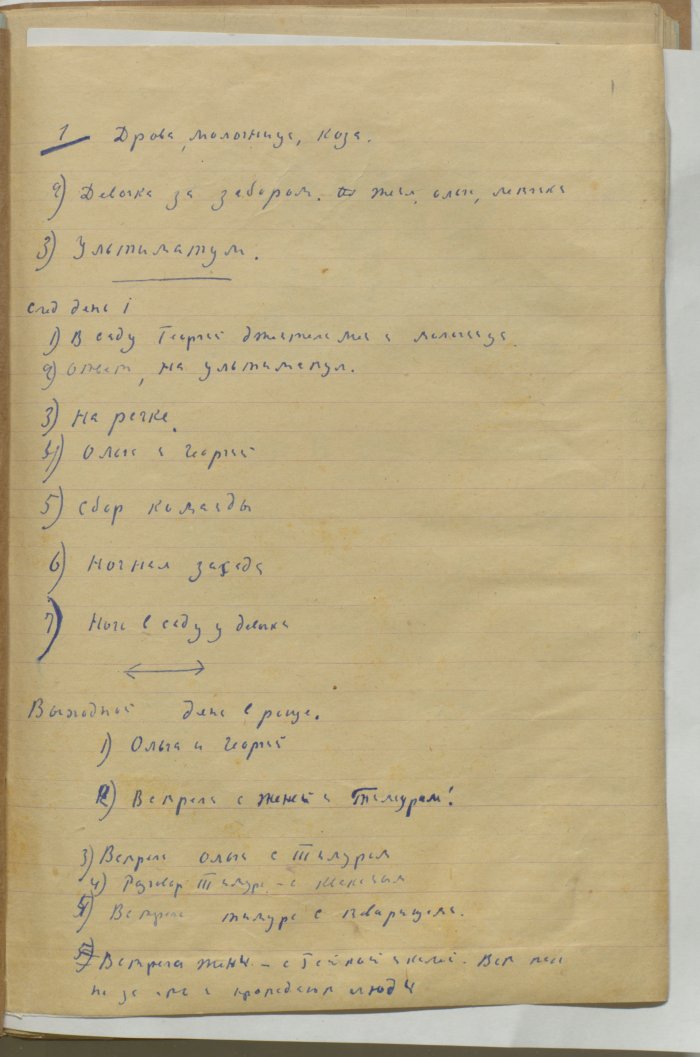 1 Дрова, молочница, коза.
2) Девочка за забором. Женя, Ольга,
3) Ультиматум.
след день
1) В саду Георгий и молочница.
2) Ответ, на ультиматум.
3) На речке.
4) Ольга и Георгий
5) Сбор команды
6) Ночная засада
7) Ночь в саду у
Выходной день в роще.
1) Ольга и Георгий
2) Встреча с Женей и Тимуром!
3) Встреча Ольги с Тимуром
4) Разговор Тимура - с
5) Встреча Тимура с товарищем.
Встреча Жени - с Вот
не за что и пропадают люди